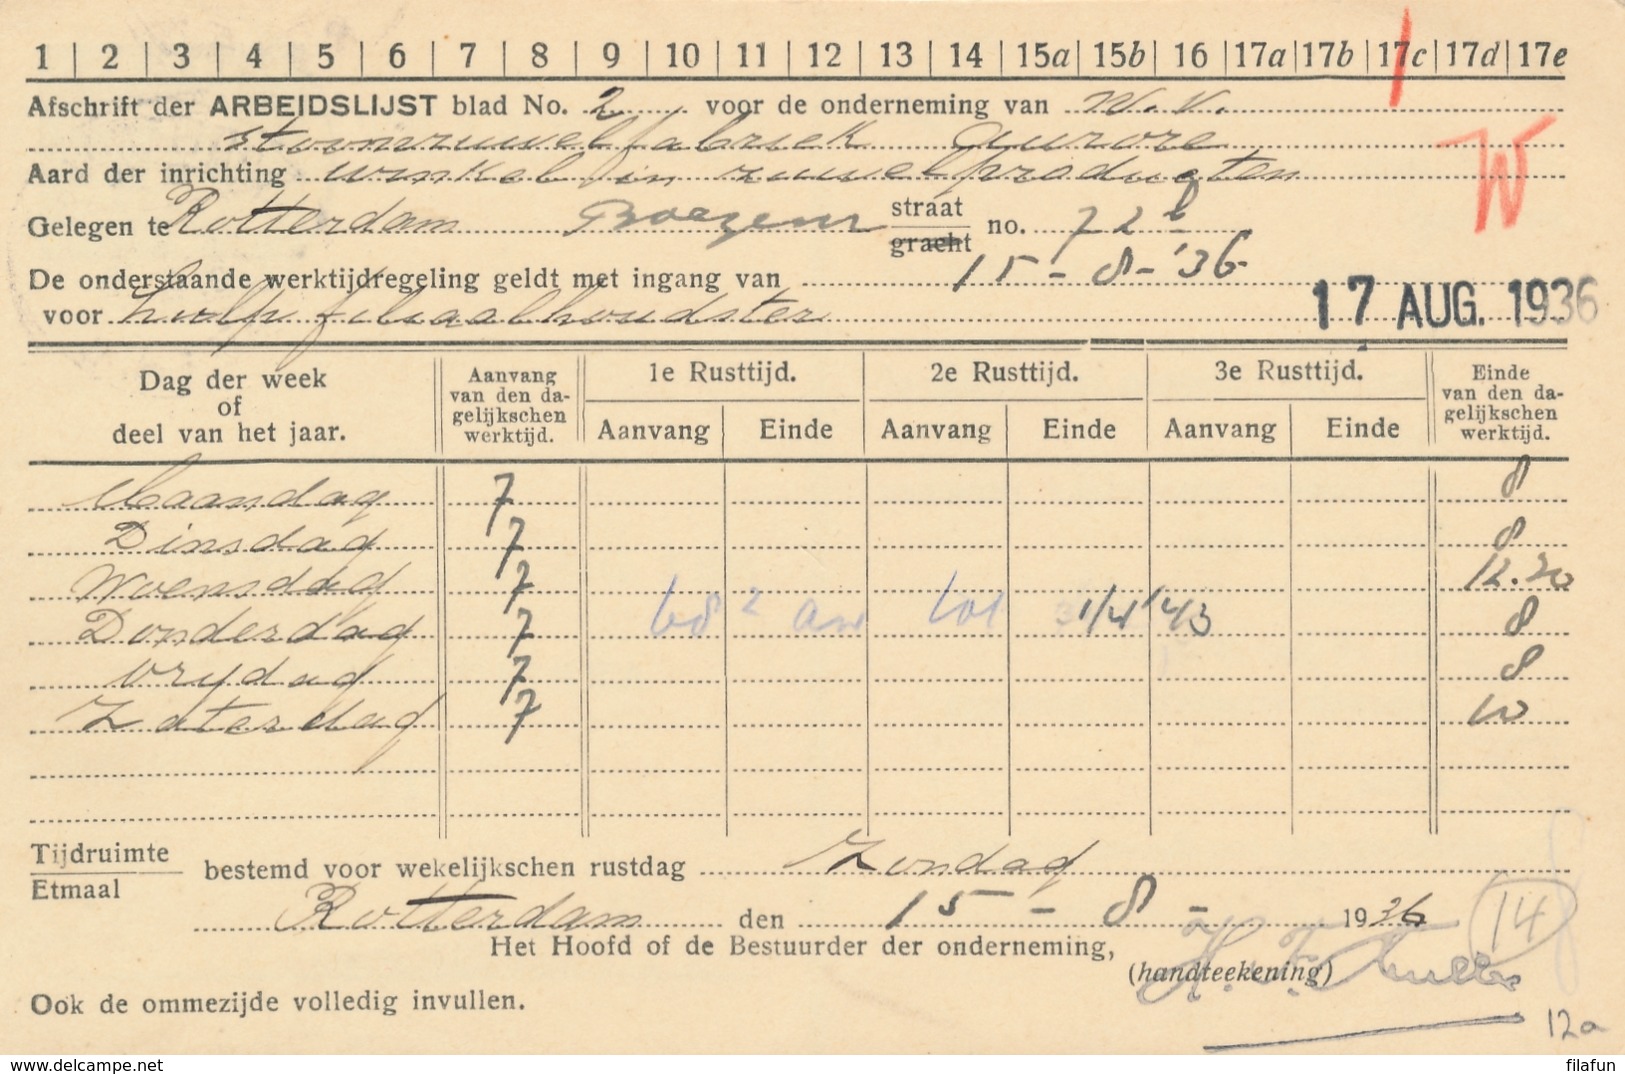 1 | 2 | 3 | 4 | 5 | 6 | 7 | 8 | 9 | 10 | 11 | 12 | 13 | 14 | 15a | 15b | 16 | 17a | 17b | 17c | 17d | 17e
Afschrift der ARBEIDSLIJST blad No. 2 voor de onderneming van N.V.
stoomzuivelfabriek Aurore
W
Aard der inrichting winkel in zuivelproducten
Gelegen te Rotterdam Boezem straat
gracht no. 72b
De onderstaande werktijdregeling geldt met ingang van 15-8-'36
voor hulp filiaalhoudster
17 AUG. 1936
Dag der week
of
deel van het jaar.
Aanvang
van den da-
gelijkschen
werktijd.
1e Rusttijd. 2e Rusttijd. 3e Rusttijd.
Aanvang Einde Aanvang Einde Aanvang Einde
Einde
van den da-
gelijkschen
werktijd.
Maandag 7 8
Dinsdag 7 8
Woensdag 7 12.30
Donderdag 7 1/4 '43 8
Vrydag 7 8
Zaterdag 7 10
Tijdruimte
Etmaal
bestemd voor wekelijkschen rustdag Zondag
Rotterdam den 15-8- 1936
Het Hoofd of de Bestuurder der onderneming,
(handteekening)
14
Ook de ommezijde volledig invullen.
12a
delcampe.net
filafun